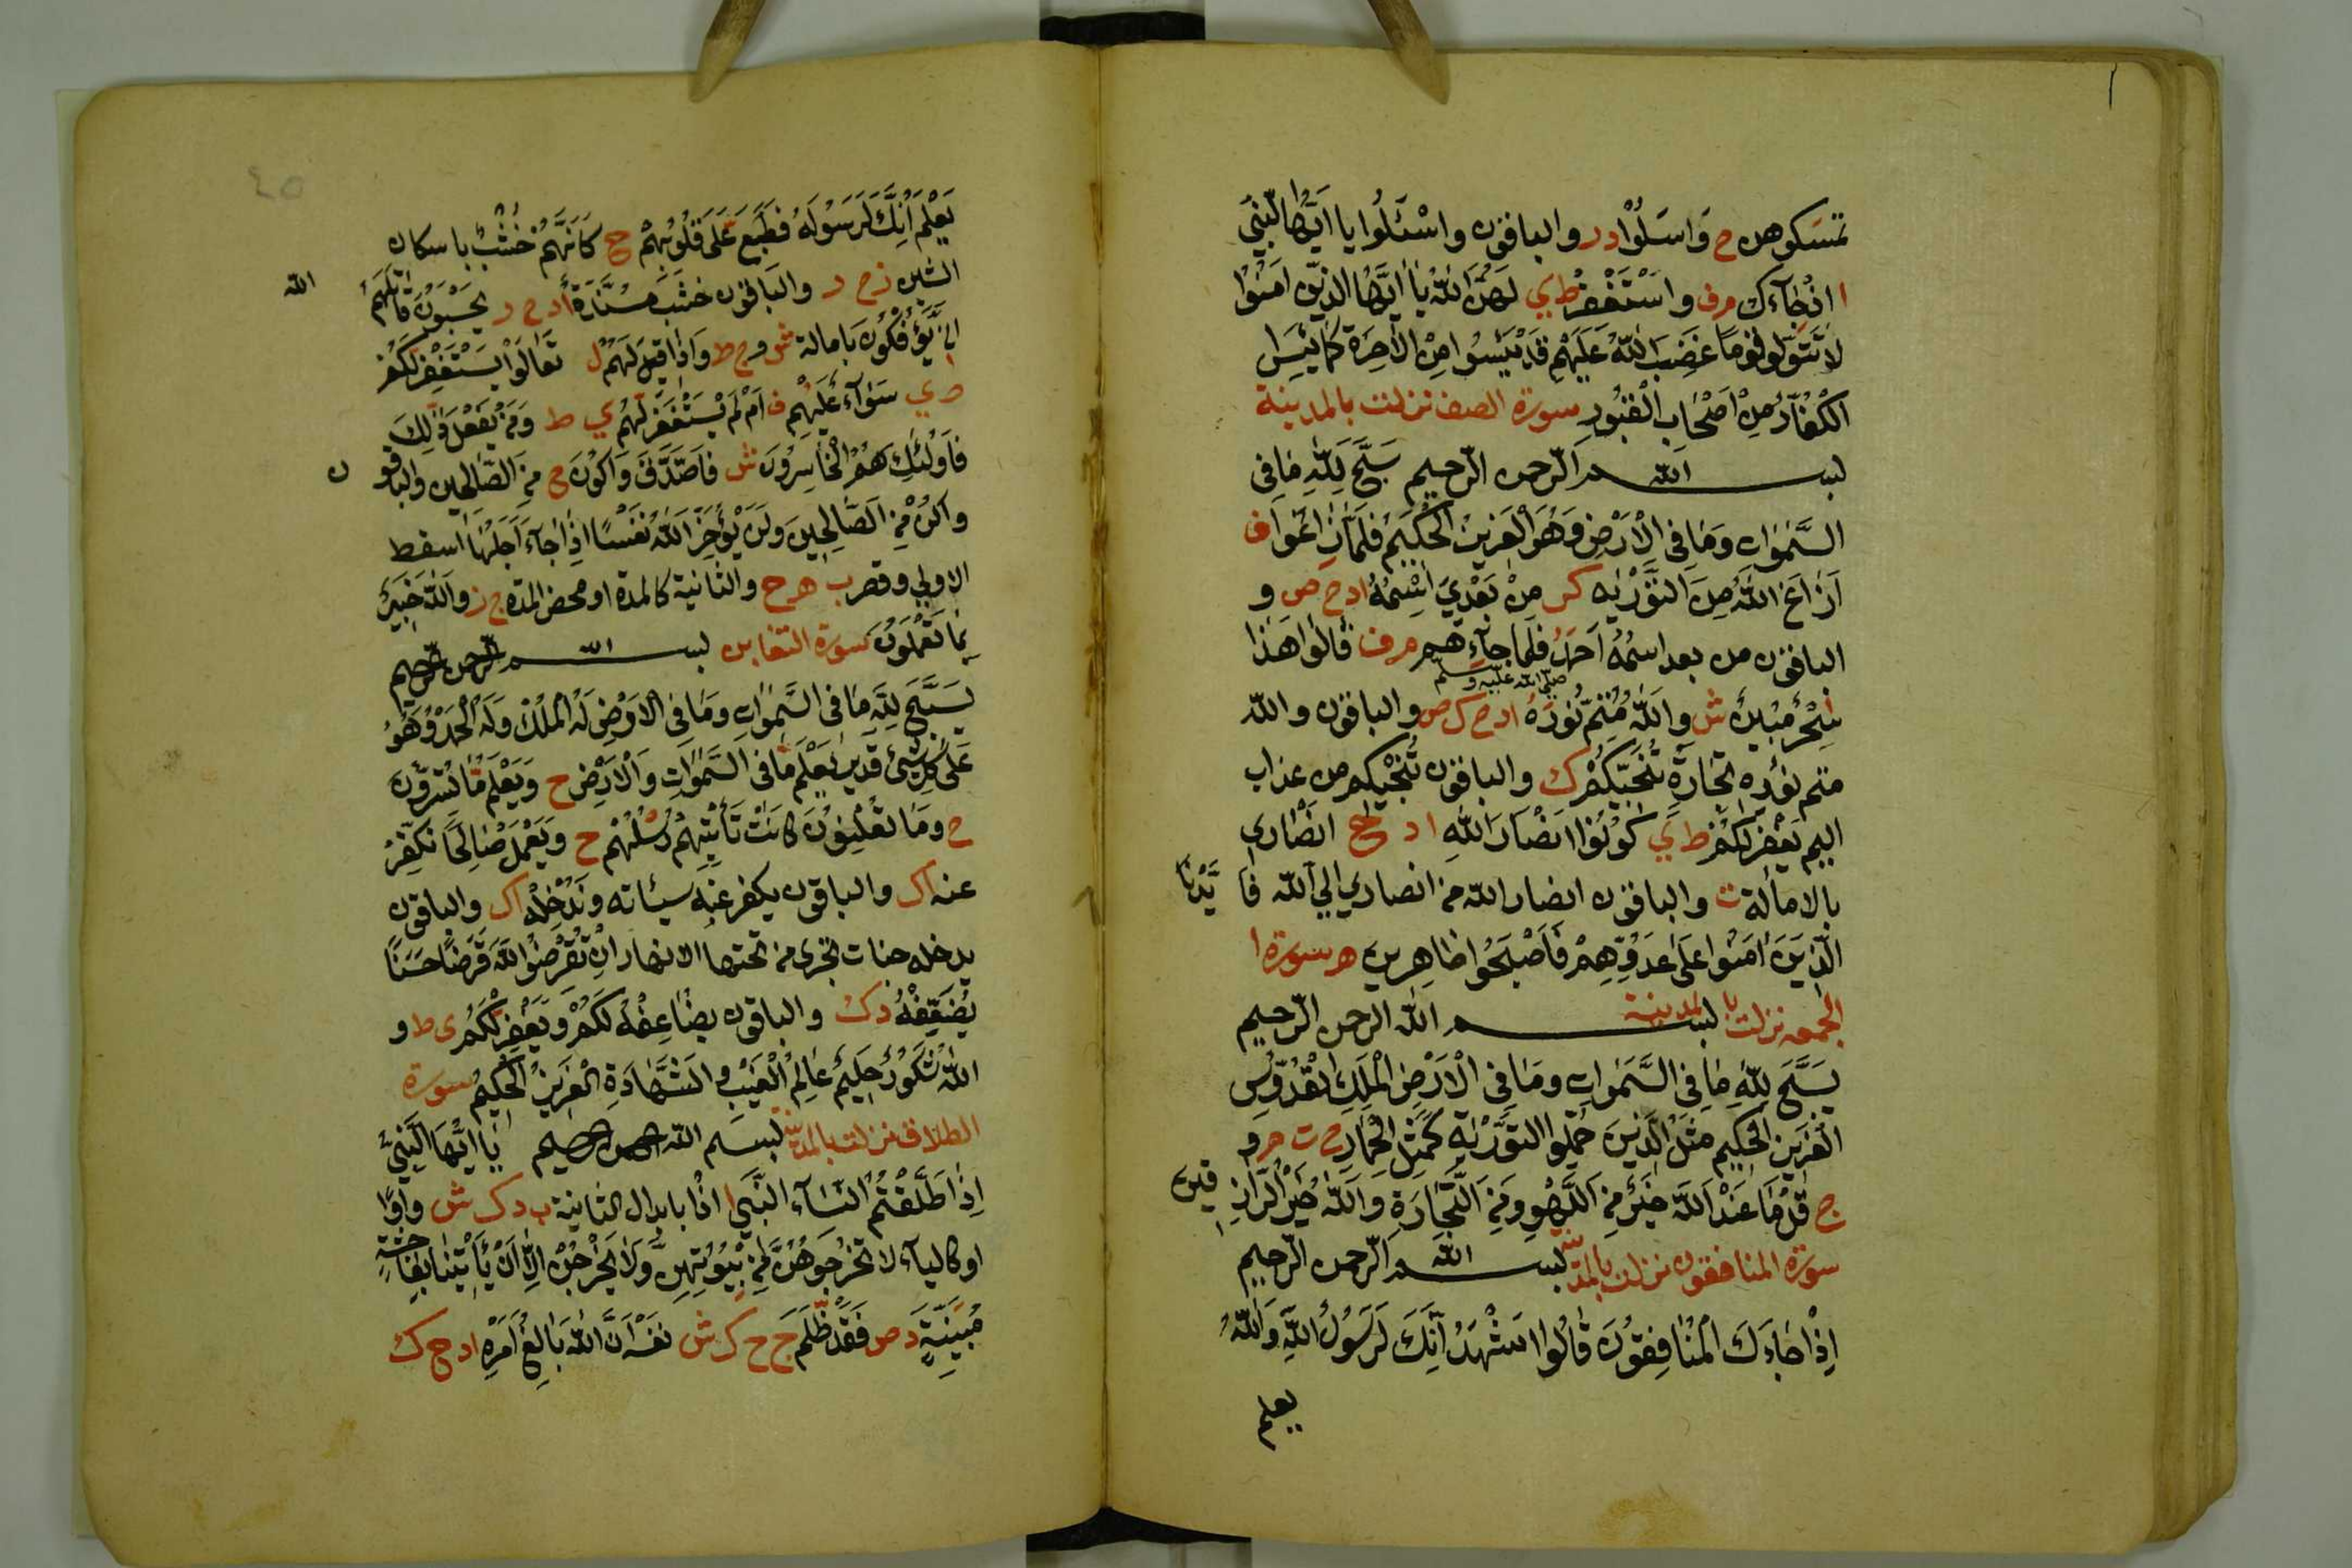 تمسكوهن ح وَاسَلُوْا د ر والباقون واسْئَلُوا يا اَيُّهَا النَّبِيّ
ا اذٰا جَاۤءَك م ف واسْتَغْفِرْ ط ي لَهُنَّ اللّٰهَ يٰا اَيُّهَا الذين اٰمَنُوا
لا تَتَوَلَّوا قومًا غَضِبَ اللّٰهُ عَلَيْهِم قَدْ يَئِسُوا مِنَ الْاٰخِرَة كَمٰا يَئِسَ
الْكُفّٰارُ مِنْ اَصْحٰابِ الْقُبُورِ سورة الصف نزلت بالمدينة
بسم الله الرحمن الرحيم سَبَّحَ لِلّٰهِ مٰا فِى
السَّمٰوٰات وَمٰا فِى الْاَرْضِ وَهُوَ الْعَزِيزُ الْحَكِيمُ فَلَمّٰا زٰاغُوا ف
اَزٰاغَ اللّٰهُ مِنَ التَّوْرٰية ك مِنْ بَعْدِيَ اسْمُهُ ا د ح ص و
الباقون من بعد اسْمُهُ اَحمَدُ فَلَمّا جاۤء هم م ف قٰالُوا هٰذا
صلى الله عليه وسلم
سٰاحِرٌ مُبِينٌ ش واللّٰهُ مُتِمٌّ نُورَهُ ا د ح ك ص والباقون واللّٰه
متم نوره تِجٰارَةٍ تُنَجِّيكُمْ ك والباقون تُنْجِيكم من عذاب
اليم يَغْفِرْ لَكُمْ ط ي كُونُوْا انْصٰارَ اللّٰهِ ا د ح انصٰاري
بالامالة ت والباقون انصار اللّٰه من انصاري الي اللّٰه فَاَيَّدْنَا
الَّذِينَ اٰمَنُوا عَلٰى عَدُوِّهِمْ فَاَصْبَحُوا ظٰاهِرِينَ سورة ا
لجمعه نزلت بالمدينة بسم اللّٰه الرحمن الرحيم
يُسَبِّحُ لِلّٰهِ مٰا فِي السَّمٰوٰاتِ ومٰا فِي الْاَرْضِ الْمَلِكِ الْقُدُّوسِ
الْعَزِيزِ الْحَكِيمِ مَثَلُ الَّذِينَ حُمِّلُوا التَّوْرٰيةَ كَمَثَلِ الْحِمٰارِ ح ت م و
ج قُلْ مٰا عِنْدَ اللّٰهِ خَيْرٌ مِنَ اللَّهْوِ وَمِنَ التِّجٰارَةِ وَاللّٰهُ خَيْرُ الرّٰازِقين
سورة المنافقون نزلت بالمدينة بسم اللّٰه الرحمن الرحيم
اِذٰا جٰاۤءَكَ الْمُنٰافِقُونَ قٰالُوا نَشْهَدُ اِنَّكَ لَرَسُولُ اللّٰهِ وَاللّٰهُ
يعلم
٤٥
يَعْلَمُ اِنَّكَ لَرَسُولُهُ فَطُبِعَ عَلٰى قُلُوبِهِمْ ح كَاَنَّهُمْ خُشْبٌ باسكان
الشين ز ح ر والباقون خُشُبٌ مُسَنَّدَة ا د ح ر يَحْسَبُونَ قٰاتَلَهُمُ اللّٰه
اَنّٰى يُؤْفَكُونَ بامالة ش و ح ط وَاِذٰا قِيلَ لَهُمْ ل تَعٰالَوْا يَسْتَغْفِرْ لَكُمْ
ط ي سَوٰاۤءٌ عَلَيْهِم ف اَمْ لَمْ يَسْتَغْفِرْ لَهُمْ ي ط وَمَنْ يَفْعَلْ ذٰلِكَ
فَاُولٰئِكَ هُمُ الْخٰاسِرُونَ ش فَاَصَّدَّقَ وَاَكُونَ ح مِنَ الصّٰالِحِين والباقون
واَكُنْ مِنَ الصّٰالِحِينَ وَلَنْ يُؤَخِّرَ اللّٰهُ نَفْسًا اِذٰا جٰاۤءَ اَجَلُهٰا اسقط
الاولي وقصر ب ه ح والثانية كالمدة او محض المدة ج ز واللّٰه خَبِيرٌ
بِمٰا تَعْمَلُونَ سورة التغابن بسم اللّٰه الرحمن الرحيم
يُسَبِّحُ لِلّٰهِ مٰا فِى السَّمٰوٰاتِ وَمٰا فِى الْاَرْضِ لَهُ الْمُلْكُ وَلَهُ الْحَمْدُ وَهُوَ
عَلٰى كُلِّ شَيْءٍ قَدِيرٌ يَعْلَمُ مٰا فِى السَّمٰوٰاتِ وَالْاَرْضِ ح وَيَعْلَمُ مٰا تُسِرُّونَ
ح وَمٰا تُعْلِنُونَ كٰانَتْ تَأْتِيهِمْ رُسْلُهُمْ ح وَيَعْمَلْ صٰالِحًا نُكَفِّرْ
عنه ا ك والباقون يكفر عنه سيئاته ونُدْخِلْهُ ا ك والباقون
يدخله جنات تجرى من تحتها الانهار اِنْ تُقْرِضُوا اللّٰهَ قَرْضًا حَسَنًا
يُضَعِّفْهُ د ك والباقون يضٰاعِفْهُ لَكُمْ وَيَغْفِرْ لَكُمْ ى ط و
اللّٰهُ شَكُورٌ حَلِيمٌ عٰالِمُ الْغَيْبِ والشَّهٰادَةِ الْعَزِيزُ الْحَكِيمُ سورة
الطلاق نزلت بالمدينة بسم اللّٰه الرحمن الرحيم يٰا اَيُّهَا النَّبِيُّ
اِذٰا طَلَّقْتُمُ النِّسٰاۤءَ النَّبِيُّ ا اذٰا بابدال الثانية ب د ك ش واوًا
او كالياء لا تُخْرِجُوهُنَّ مِنْ بُيُوتِهِنَّ وَلٰا يَخْرُجْنَ اِلّٰا اَنْ يَأْتِينَ بِفٰاحِشَةٍ
مُبَيَّنَةٍ د ص فَقَدْ ظَلَمَ ج ح ك ش نَفْسَهُ اِنَّ اللّٰهَ بٰالِغٌ اَمْرَهُ ا د ح ك